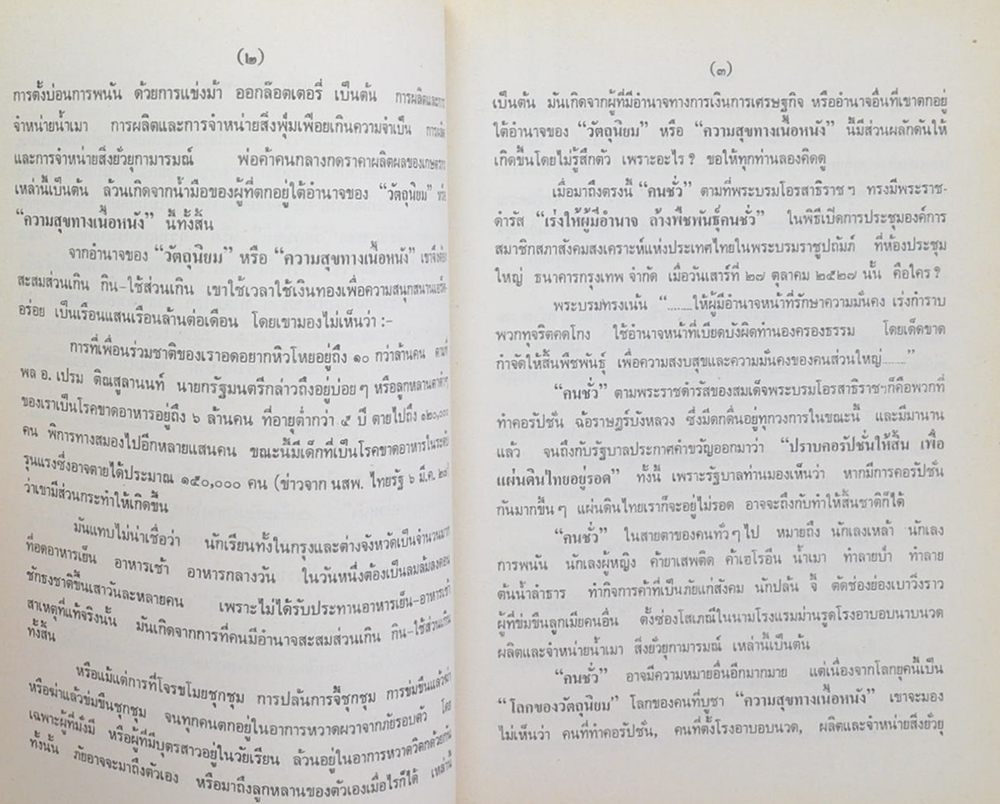 (๒)
การตั้งบ่อนการพนัน ด้วยการแข่งม้า ออกล๊อตเตอรี่ เป็นต้น การผลิตและการ
จำหน่ายน้ำเมา การผลิตและการจำหน่ายสิ่งฟุ่มเฟือยเกินความจำเป็น การผลิต
และการจำหน่ายสิ่งยั่วยุกามารมณ์ พ่อค้าคนกลางกดราคาผลิตผลของเกษตรกร
เหล่านี้เป็นต้น ล้วนเกิดจากน้ำมือของผู้ที่ตกอยู่ใต้อำนาจของ “วัตถุนิยม” หรือ
“ความสุขทางเนื้อหนัง” นี้ทั้งสิ้น
จากอำนาจของ “วัตถุนิยม” หรือ “ความสุขทางเนื้อหนัง” เขาจึงต้อง
สะสมส่วนเกิน กิน-ใช้ส่วนเกิน เขาใช้เวลาใช้เงินทองเพื่อความสนุกสนานเอร็ด
อร่อย เป็นเรือนแสนเรือนล้านต่อเดือน โดยเขามองไม่เห็นว่า :-
การที่เพื่อนร่วมชาติของเราอดอยากหิวโหยอยู่ถึง ๑๐ กว่าล้านคน ตามที่
พล อ. เปรม ติณสูลานนท์ นายกรัฐมนตรีกล่าวถึงอยู่บ่อยๆ หรือลูกหลานตาดำๆ
ของเราเป็นโรคขาดอาหารอยู่ถึง ๖ ล้านคน ที่อายุต่ำกว่า ๕ ปี ตายไปถึง ๑๒๐,๐๐๐
คน พิการทางสมองไปอีกหลายแสนคน ขณะนี้มีเด็กที่เป็นโรคขาดอาหารในระดับ
รุนแรงซึ่งอาจตายได้ประมาณ ๑๕๐,๐๐๐ คน (ข่าวจาก นสพ. ไทยรัฐ ๖ มี.ค. ๒๗)
ว่าเขามีส่วนกระทำให้เกิดขึ้น
มันแทบไม่น่าเชื่อว่า นักเรียนทั้งในกรุงและต่างจังหวัดเป็นจำนวนมาก
ที่อดอาหารเย็น อาหารเช้า อาหารกลางวัน ในวันหนึ่งต้องเป็นลมล้มลงตอน
ชักธงชาติขึ้นเสาวันละหลายคน เพราะไม่ได้รับประทานอาหารเย็น-อาหารเช้า
สาเหตุที่แท้จริงนั้น มันเกิดจากการที่คนมีอำนาจสะสมส่วนเกิน กิน-ใช้ส่วนเกิน
ทั้งสิ้น
หรือแม้แต่การที่โจรขโมยชุกชุม การปล้นการจี้ชุกชุม การข่มขืนแล้วฆ่า
หรือฆ่าแล้วข่มขืนชุกชุม จนทุกคนตกอยู่ในอาการหวาดผวาจากภัยรอบตัว โดย
เฉพาะผู้ที่มั่งมี หรือผู้ที่มีบุตรสาวอยู่ในวัยเรียน ล้วนอยู่ในอาการหวาดวิตกด้วยกัน
ทั้งนั้น ภัยอาจจะมาถึงตัวเอง หรือมาถึงลูกหลานของตัวเองเมื่อไรก็ได้ เหล่านี้
(๓)
เป็นต้น มันเกิดจากผู้ที่มีอำนาจทางการเงินการเศรษฐกิจ หรืออำนาจอื่นที่เขาตกอยู่
ใต้อำนาจของ “วัตถุนิยม” หรือ “ความสุขทางเนื้อหนัง” นี้มีส่วนผลักดันให้
เกิดขึ้นโดยไม่รู้สึกตัว เพราะอะไร ? ขอให้ทุกท่านลองคิดดู
เมื่อมาถึงตรงนี้ “คนชั่ว” ตามที่พระบรมโอรสาธิราชฯ ทรงมีพระราช-
ดำรัส “เร่งให้ผู้มีอำนาจ ล้างพืชพันธุ์คนชั่ว” ในพิธีเปิดการประชุมองค์การ
สมาชิกสภาสังคมสงเคราะห์แห่งประเทศไทยในพระบรมราชูปถัมภ์ ที่ห้องประชุม
ใหญ่ ธนาคารกรุงเทพ จำกัด เมื่อวันเสาร์ที่ ๒๗ ตุลาคม ๒๕๒๗ นั้น คือใคร ?
พระบรมทรงเน้น “........ให้ผู้มีอำนาจหน้าที่รักษาความมั่นคง เร่งกำราบ
พวกทุจริตคดโกง ใช้อำนาจหน้าที่เบียดบังผิดทำนองครองธรรม โดยเด็ดขาด
กำจัดให้สิ้นพืชพันธุ์ เพื่อความสงบสุขและความมั่นคงของคนส่วนใหญ่........”
“คนชั่ว” ตามพระราชดำรัสของสมเด็จพระบรมโอรสาธิราชฯก็คือพวกที่
ทำคอรัปชั่น ฉ้อราษฎร์บังหลวง ซึ่งมีดกดื่นอยู่ทุกวงการในขณะนี้ และมีมานาน
แล้ว จนถึงกับรัฐบาลประกาศคำขวัญออกมาว่า “ปราบคอรัปชั่นให้สิ้น เพื่อ
แผ่นดินไทยอยู่รอด” ทั้งนี้ เพราะรัฐบาลท่านมองเห็นว่า หากมีการคอรัปชั่น
กันมากขึ้นๆ แผ่นดินไทยเราก็จะอยู่ไม่รอด อาจจะถึงกับทำให้สิ้นชาติก็ได้
“คนชั่ว” ในสายตาของคนทั่วๆไป หมายถึง นักเลงเหล้า นักเลง
การพนัน นักเลงผู้หญิง ค้ายาเสพติด ค้าเฮโรอีน น้ำเมา ทำลายป่า ทำลาย
ต้นน้ำลำธาร ทำกิจการค้าที่เป็นภัยแก่สังคม นักปล้น จี้ ตัดช่องย่องเบาวิ่งราว
ผู้ที่ข่มขืนลูกเมียคนอื่น ตั้งซ่องโสเภณีในนามโรงแรมม่านรูดโรงอาบอบนาบนวด
ผลิตและจำหน่ายน้ำเมา สิ่งยั่วยุกามารมณ์ เหล่านี้เป็นต้น
“คนชั่ว” อาจมีความหมายอื่นอีกมากมาย แต่เนื่องจากโลกยุคนี้เป็น
“โลกของวัตถุนิยม” โลกของคนที่บูชา “ความสุขทางเนื้อหนัง” เขาจะมอง
ไม่เห็นว่า คนที่ทำคอรัปชั่น, คนที่ตั้งโรงอาบอบนวด, ผลิตและจำหน่ายสิ่งยั่วยุ